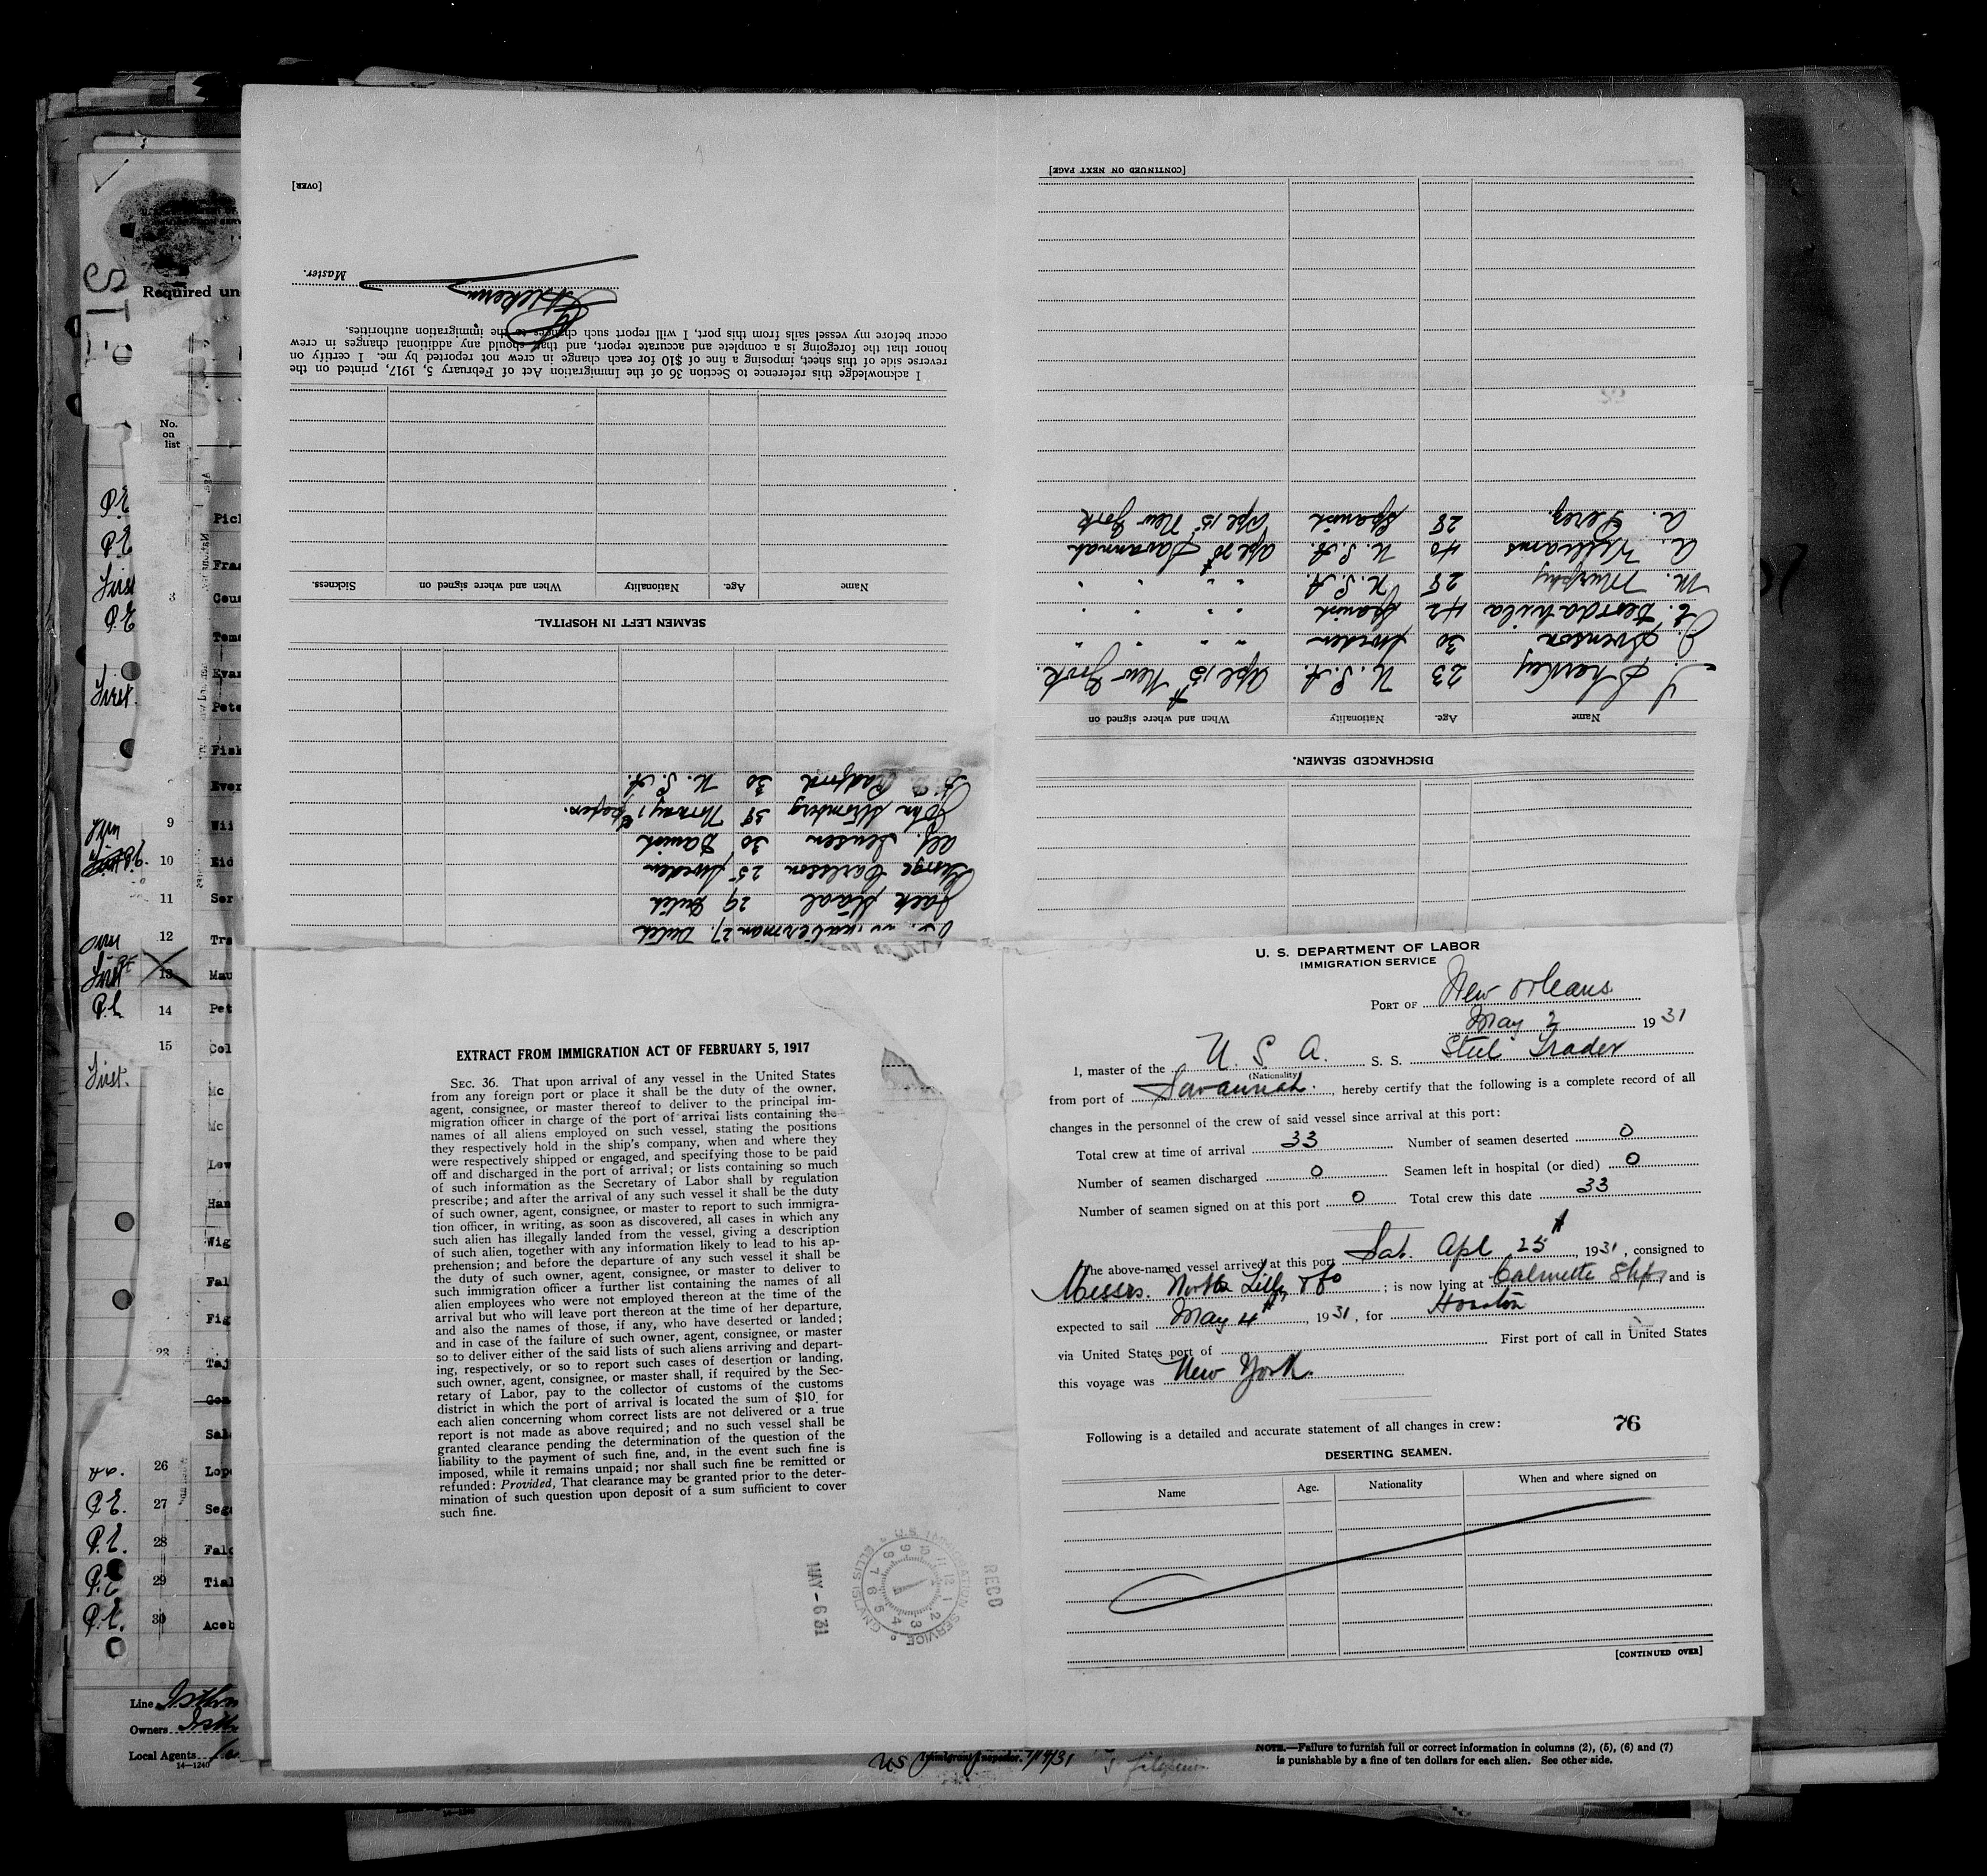 U. S. DEPARTMENT OF LABOR
IMMIGRATION SERVICE
PORT OF New Orleans
May 2 1931
I, master of the U. S. A. S. S. Steel Trader
(Nationality)
from port of Savannah., hereby certify that the following is a complete record of all
changes in the personnel of the crew of said vessel since arrival at this port:
Total crew at time of arrival 33 Number of seamen deserted 0
Number of seamen discharged 0 Seamen left in hospital (or died) 0
Number of seamen signed on at this port 0 Total crew this date 33
The above-named vessel arrived at this port Sat. Apl 25th, 1931, consigned to
Messrs. Norton Lilly & Co; is now lying at Calmette Slip and is
expected to sail May 4th, 1931, for Houston
via United States port of First port of call in United States
this voyage was New York.
Following is a detailed and accurate statement of all changes in crew: 76
DESERTING SEAMEN.
Name Age. Nationality When and where signed on
[CONTINUED OVER]
EXTRACT FROM IMMIGRATION ACT OF FEBRUARY 5, 1917
SEC. 36. That upon arrival of any vessel in the United States
from any foreign port or place it shall be the duty of the owner,
agent, consignee, or master thereof to deliver to the principal im-
migration officer in charge of the port of arrival lists containing the
names of all aliens employed on such vessel, stating the positions
they respectively hold in the ship's company, when and where they
were respectively shipped or engaged, and specifying those to be paid
off and discharged in the port of arrival; or lists containing so much
of such information as the Secretary of Labor shall by regulation
prescribe; and after the arrival of any such vessel it shall be the duty
of such owner, agent, consignee, or master to report to such immigra-
tion officer, in writing, as soon as discovered, all cases in which any
such alien has illegally landed from the vessel, giving a description
of such alien, together with any information likely to lead to his ap-
prehension; and before the departure of any such vessel it shall be
the duty of such owner, agent, consignee, or master to deliver to
such immigration officer a further list containing the names of all
alien employees who were not employed thereon at the time of the
arrival but who will leave port thereon at the time of her departure,
and also the names of those, if any, who have deserted or landed;
and in case of the failure of such owner, agent, consignee, or master
so to deliver either of the said lists of such aliens arriving and depart-
ing, respectively, or so to report such cases of desertion or landing,
such owner, agent, consignee, or master shall, if required by the Sec-
retary of Labor, pay to the collector of customs of the customs
district in which the port of arrival is located the sum of $10 for
each alien concerning whom correct lists are not delivered or a true
report is not made as above required; and no such vessel shall be
granted clearance pending the determination of the question of the
liability to the payment of such fine, and, in the event such fine is
imposed, while it remains unpaid; nor shall such fine be remitted or
refunded: Provided, That clearance may be granted prior to the deter-
mination of such question upon deposit of a sum sufficient to cover
such fine.
RECD
IMMIGRATION SERVICE
ELLIS ISLAND
MAY - 6 31
DISCHARGED SEAMEN.
Name Age. Nationality When and where signed on
Sherkey 23 U. S. A. Apl 15th New York.
Svenson 30 Sweden " " " "
42 Spanish " " "
M. Murphy 25 U. S. A. " " "
A. Williams 40 U. S. A. Apl 20th Savannah
A. Perez 28 Spanish Apl 15th New York
[CONTINUED ON NEXT PAGE]
27. Dutch
Jack Staal 29 Dutch
George Carlson 25 Sweden
Alf. Jensen 30 Danish
John Stromberg 38 Norway,
Radford 30 U. S. A.
SEAMEN LEFT IN HOSPITAL.
Name Age. Nationality When and where signed on Sickness.
I acknowledge this reference to Section 36 of the Immigration Act of February 5, 1917, printed on the
reverse side of this sheet, imposing a fine of $10 for each change in crew not reported by me. I certify on
honor that the foregoing is a complete and accurate report, and that should any additional changes in crew
occur before my vessel sails from this port, I will report such changes to the immigration authorities.
Master.
[OVER]
Required un
No.
on
list
P.E. Pick
P.E. Fra
First 3 Cous
P.E. Tem
Evan
First. Pete
Fish
Ever
9 Wil
10 Eid
11 Ser
12 Tra
First 13 Mau
P.E. 14 Pet
15 Col
First. Mc
Mc
Lew
Han
Wig
Fal
Fig
23 Taj
Gom
Sal
26 Lope
P.E. 27 Sega
P.E. 28 Falc
P.E. 29 Tial
P.E. 30 Aceb
Line Isthm
Owners Isth
Local Agents
14—1240
US Immigrant Inspector.
NOTE.—Failure to furnish full or correct information in columns (2), (5), (6) and (7)
is punishable by a fine of ten dollars for each alien. See other side.